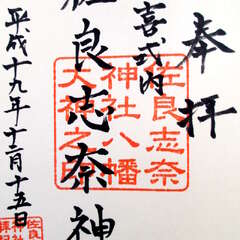 奉拝
喜式内
佐良志奈神
佐良志奈
神社八幡
大神之印
平成十九年十二月十五日
佐良